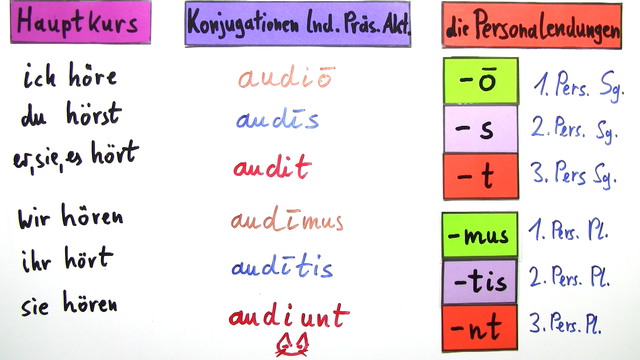 Hauptkurs Konjugationen Ind. Präs. Akt. die Personalendungen
ich höre audiō -ō 1. Pers. Sg.
du hörst audīs -s 2. Pers. Sg.
er, sie, es hört audit -t 3. Pers Sg.
wir hören audīmus -mus 1. Pers. Pl.
ihr hört audītis -tis 2. Pers. Pl.
sie hören audiunt -nt 3. Pers. Pl.